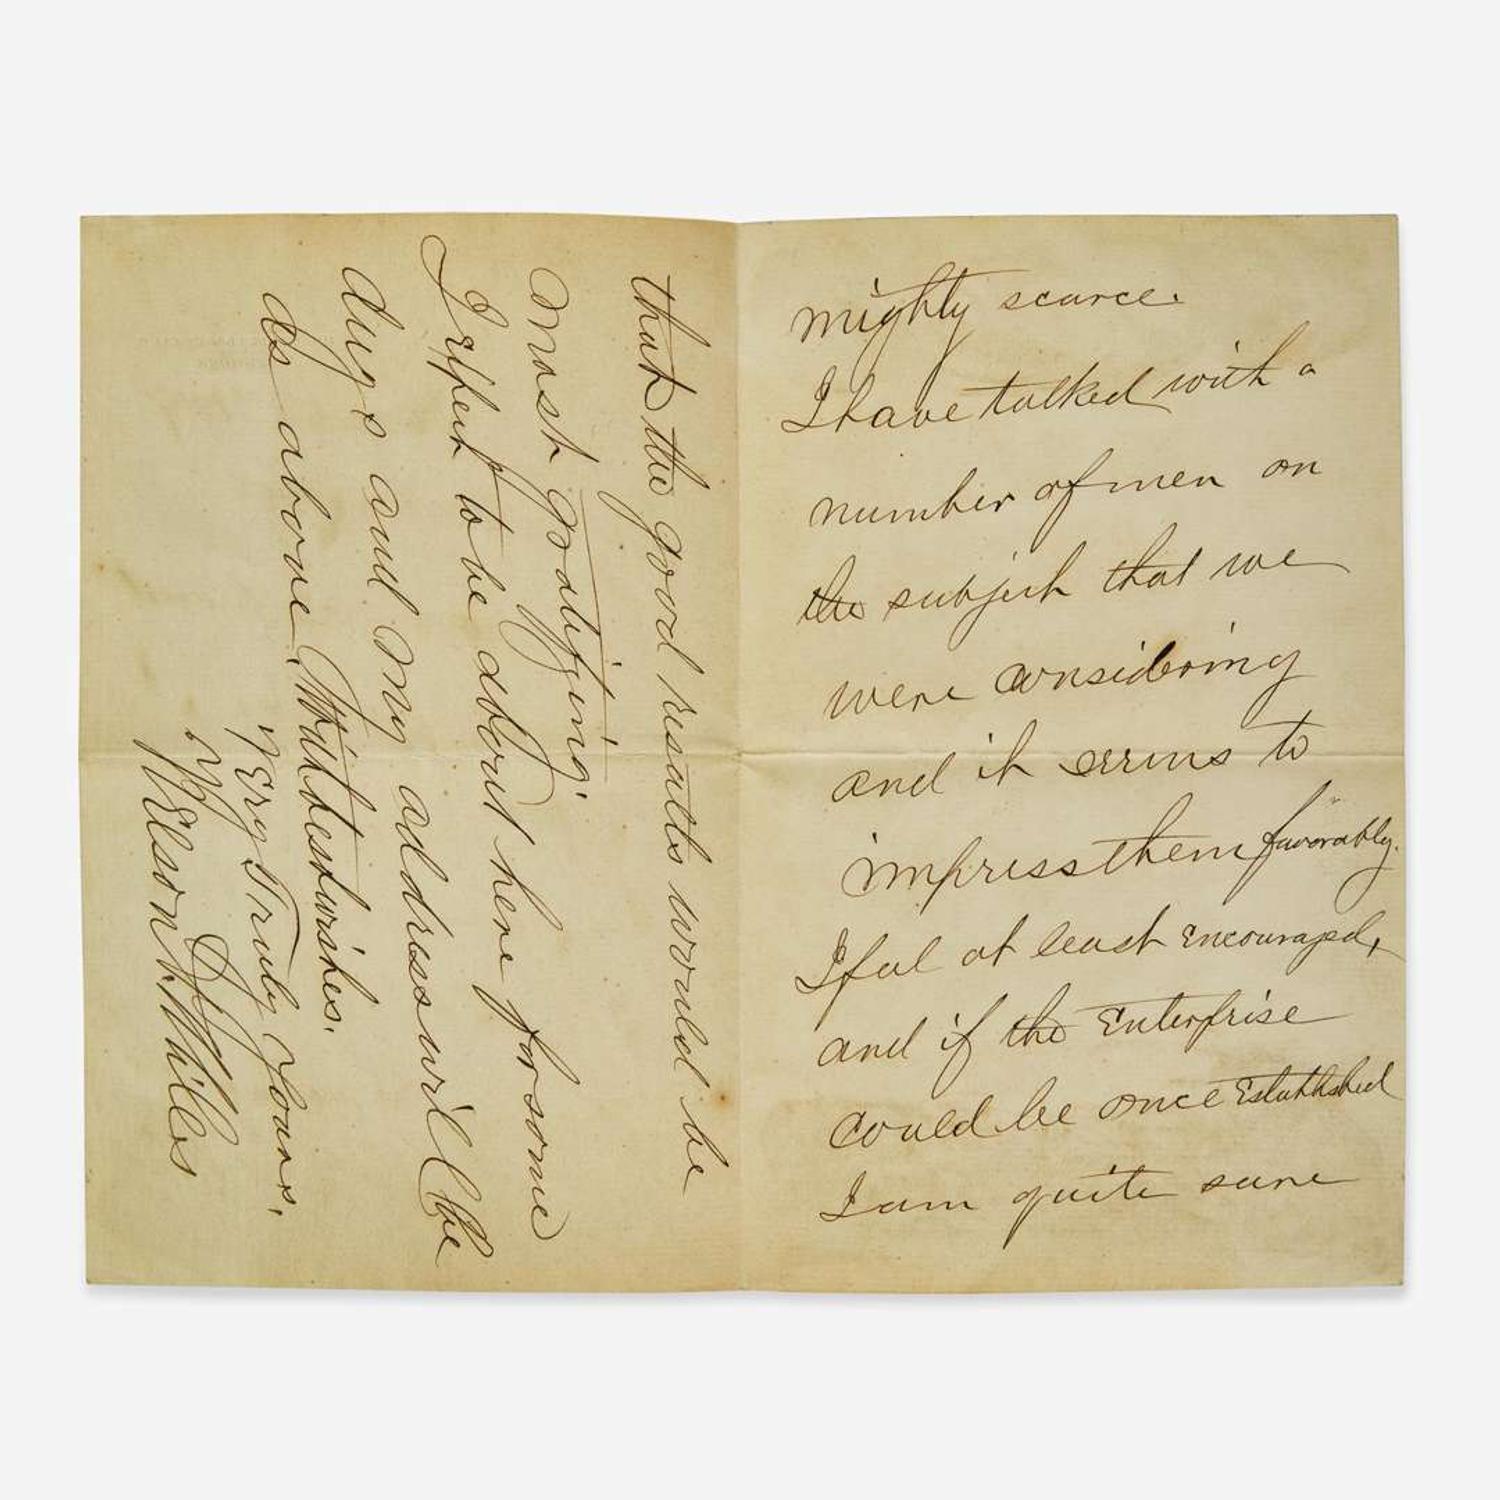 mighty scarce.
I have talked with a
number of men on
the subject that we
were considering
and it seems to
impress them favorably.
I feel at least encouraged,
and if the Enterprise
could be once Established
I am quite sure
that the good results would be
most gratifying.
I expect to be about here for some
days and my address will be
as above. With best wishes.
Very Truly Yours,
Nelson A. Miles